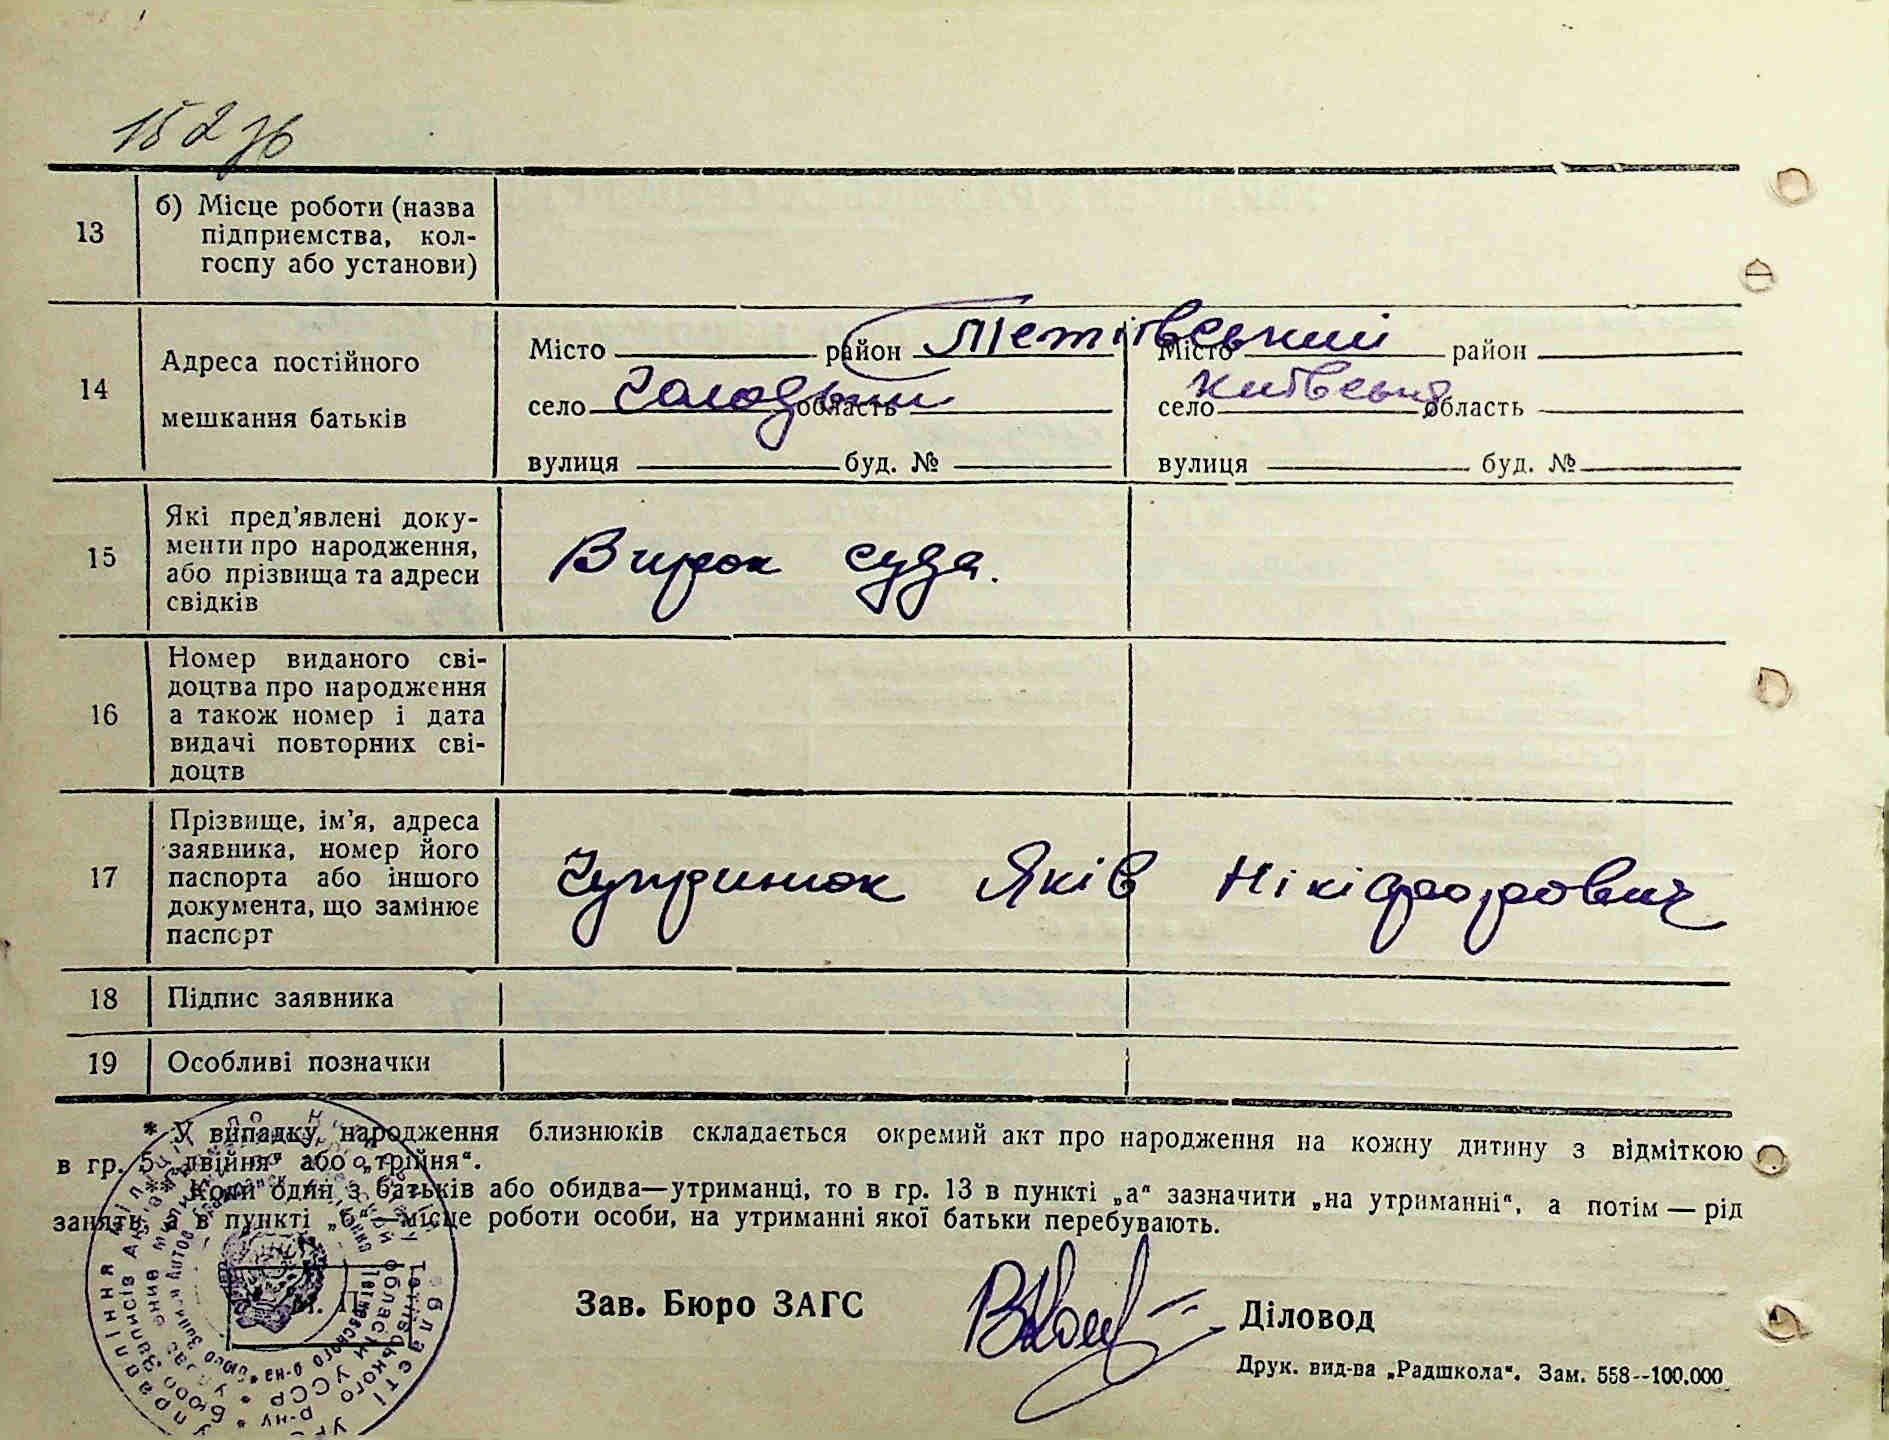 152 зв
13
б) Місце роботи (назва
підприємства, кол-
госпу або установи)
14
Адреса постійного
мешкання батьків
Місто район Тетіївський Місто район
село Голодьки область село Київська область
вулиця буд. № вулиця буд. №
15
Які пред’явлені доку-
менти про народження,
або прізвища та адреси
свідків
Вирок суда.
16
Номер виданого сві-
доцтва про народження
а також номер і дата
видачі повторних сві-
доцтв
17
Прізвище, ім’я, адреса
заявника, номер його
паспорта або іншого
документа, що замінює
паспорт
Чупринюк Яків Нікіфорович
18
Підпис заявника
19
Особливі позначки
* У випадку народження близнюків складається окремий акт про народження на кожну дитину з відміткою
в гр. 5 „двійня“ або „трійня“.
** Коли один з батьків або обидва—утриманці, то в гр. 13 в пункті „а“ зазначити „на утриманні“, а потім — рід
занять, а в пункті „б“—місце роботи особи, на утриманні якої батьки перебувають.
М. П.
Зав. Бюро ЗАГС
Діловод
Друк. вид-ва „Радшкола“. Зам. 558--100.000